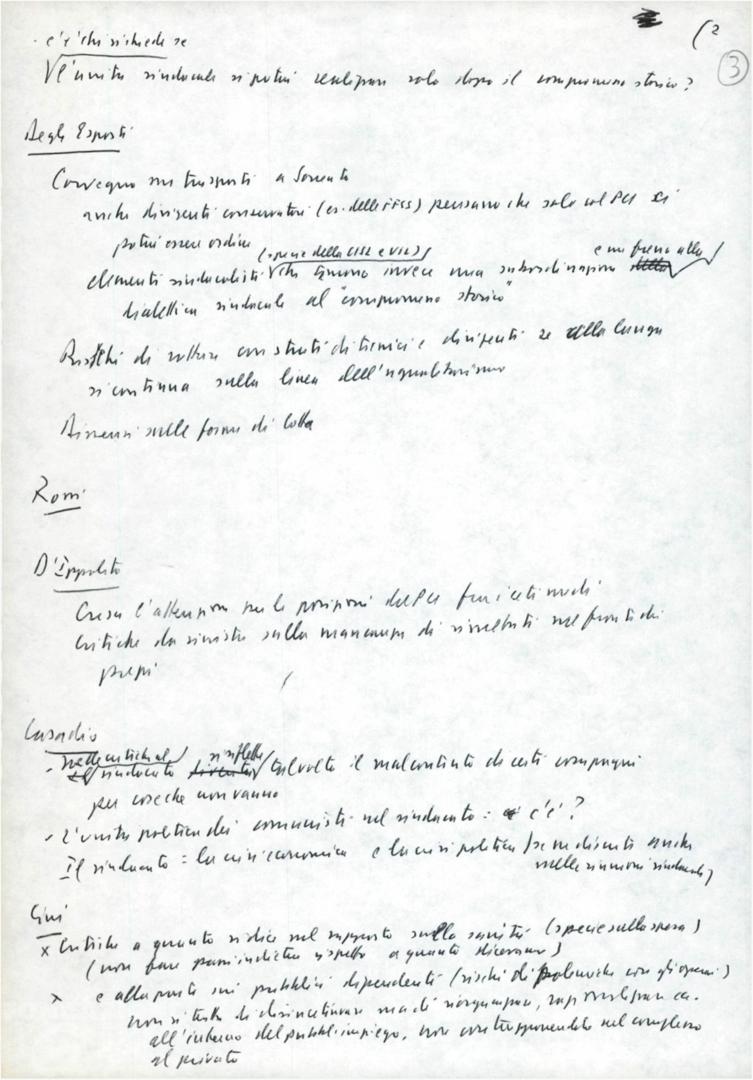 (2
3
- c'è chi si chiede se
l'unità sindacale si potrà realizzare solo dopo il compromesso storico?
Degli Esposti
Convegno sui trasporti a Sorrento
anche dirigenti conservatori (es. delle FFSS) pensano che solo col PCI ci
potrà essere ordine
(specie della CISL e UIL) e un freno alla
elementi sindacalisti che temono invece una subordinazione della
dialettica sindacale al "compromesso storico"
Rischi di rotture con strati di tecnici e dirigenti se alla lunga
si continua sulla linea dell'egualitarismo
Dissensi sulle forme di lotta
Romi
D'Ippolito
Cresce l'attenzione per le posizioni del PCI fra i ceti medi
Critiche da sinistra sulla mancanza di risultati sul fronte dei
prezzi
Casadio
- nelle critiche al si riflette
sindacato talvolta il malcontento di certi compagni
per cose che non vanno
- L'unità politica dei comunisti nel sindacato: c'è?
Il sindacato: la crisi economica e la crisi politica (se ne discuta anche
nelle riunioni sindacali)
Gini
x Critiche a quanto si dice nel rapporto sulla sanità (specie sulla spesa)
(non fare passi indietro rispetto a quanto dicevamo)
x e alla parte sui pubblici dipendenti (rischi di polemiche con gli operai)
non si tratta di disincentivare ma di riorganizzare,
all'interno del pubblico impiego, non contrapponendolo nel complesso
al privato